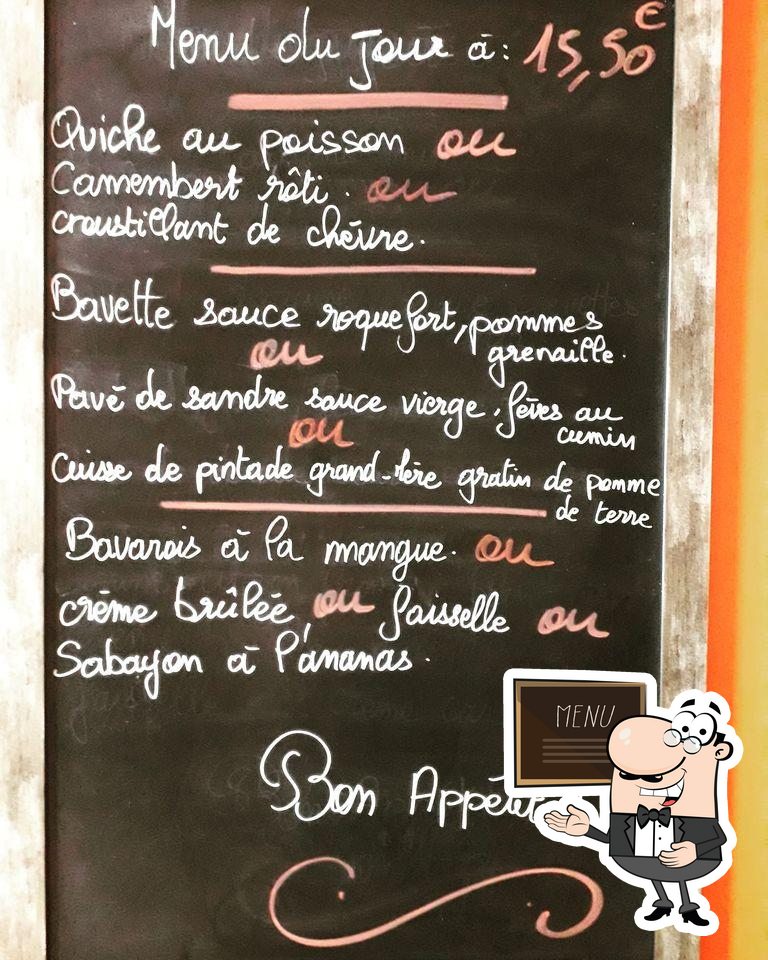 Menu du jour à: 15,50€
Quiche au poisson ou
Camembert rôti. ou
croustillant de chèvre.
Bavette sauce roquefort, pommes
grenaille.
ou
Pavé de sandre sauce vierge. fèves au
cumin
ou
Cuisse de pintade grand-Mère gratin de pomme
de terre
Bavarois à la mangue. ou
crème brûlée, ou faisselle ou
Sabayon à l'ananas.
MENU
Bon Appétit